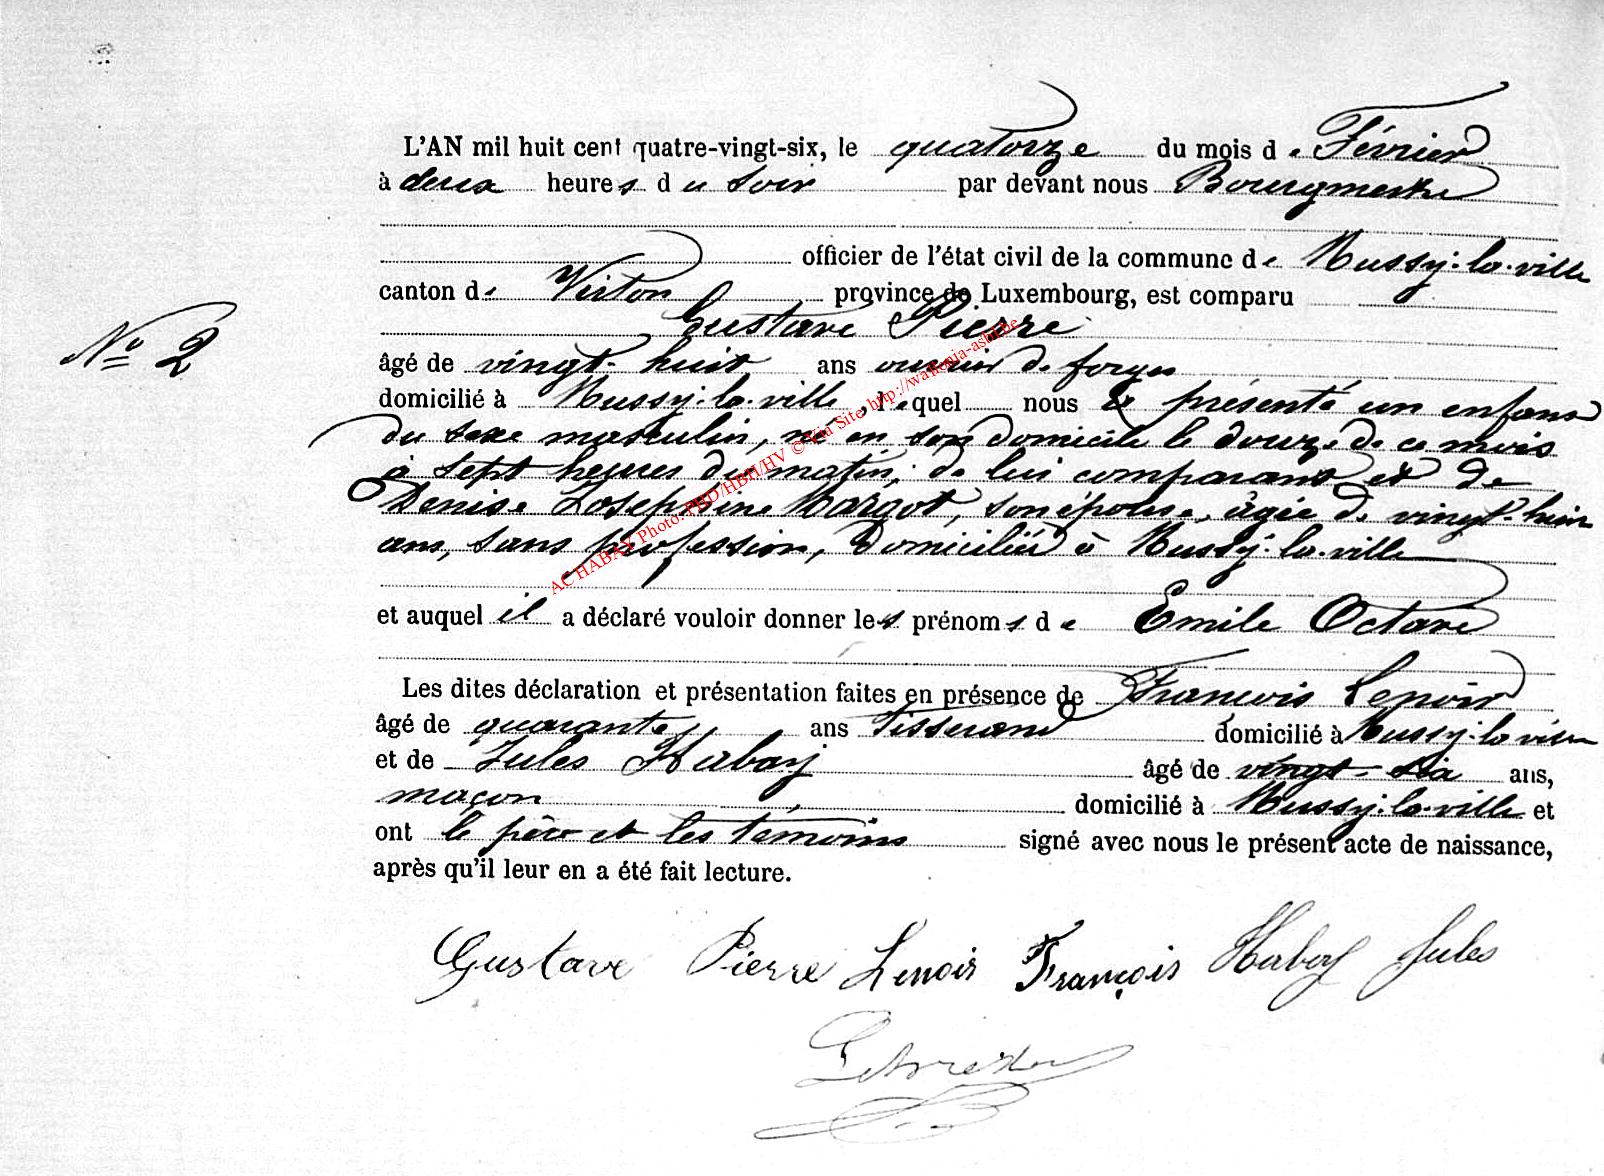 L'AN mil huit cent quatre-vingt-six, le quatorze du mois de Février
à deux heures du soir par devant nous Bourgmestre
officier de l'état civil de la commune de Mussy-la-ville
canton de Virton province de Luxembourg, est comparu
Gustave Pierre
N° 2
âgé de vingt-huit ans ouvrier de forges
domicilié à Mussy-la-ville, lequel nous a présenté un enfant
du sexe masculin, né en son domicile le douze de ce mois
à sept heures du matin, de lui comparant et de
Denise Joséphine Margot, son épouse, âgée de vingt-huit
ans, sans profession, domiciliée à Mussy-la-ville
et auquel il a déclaré vouloir donner les prénoms de Emile Octave
Les dites déclaration et présentation faites en présence de François Lenoir
âgé de quarante ans tisserand domicilié à Mussy-la-ville
et de Jules Habay âgé de vingt-six ans,
maçon domicilié à Mussy-la-ville et
ont le père et les témoins signé avec nous le présent acte de naissance,
après qu'il leur en a été fait lecture.
Gustave Pierre Lenoir François Habay Jules
AC HABAY Photo: PHD/HBH/HV © Via Site http://wallonia-asbl.be